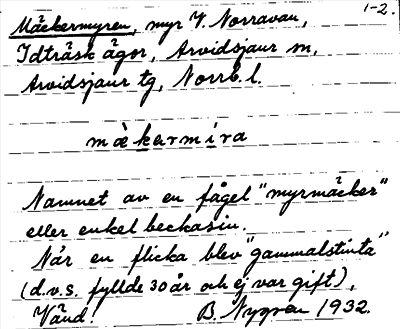 1-2.
Mäckermyren, myr V. Norravan,
Idträsk ägor, Arvidsjaur sn,
Arvidsjaur tg, Norrb. l.
mäkarmira
Namnet av en fågel "myrmäcker"
eller enkel beckasin.
När en flicka blev "gammalstinta"
(d.v.s. fyllde 30 år och ej var gift),
Vänd! B. Nygren 1932.